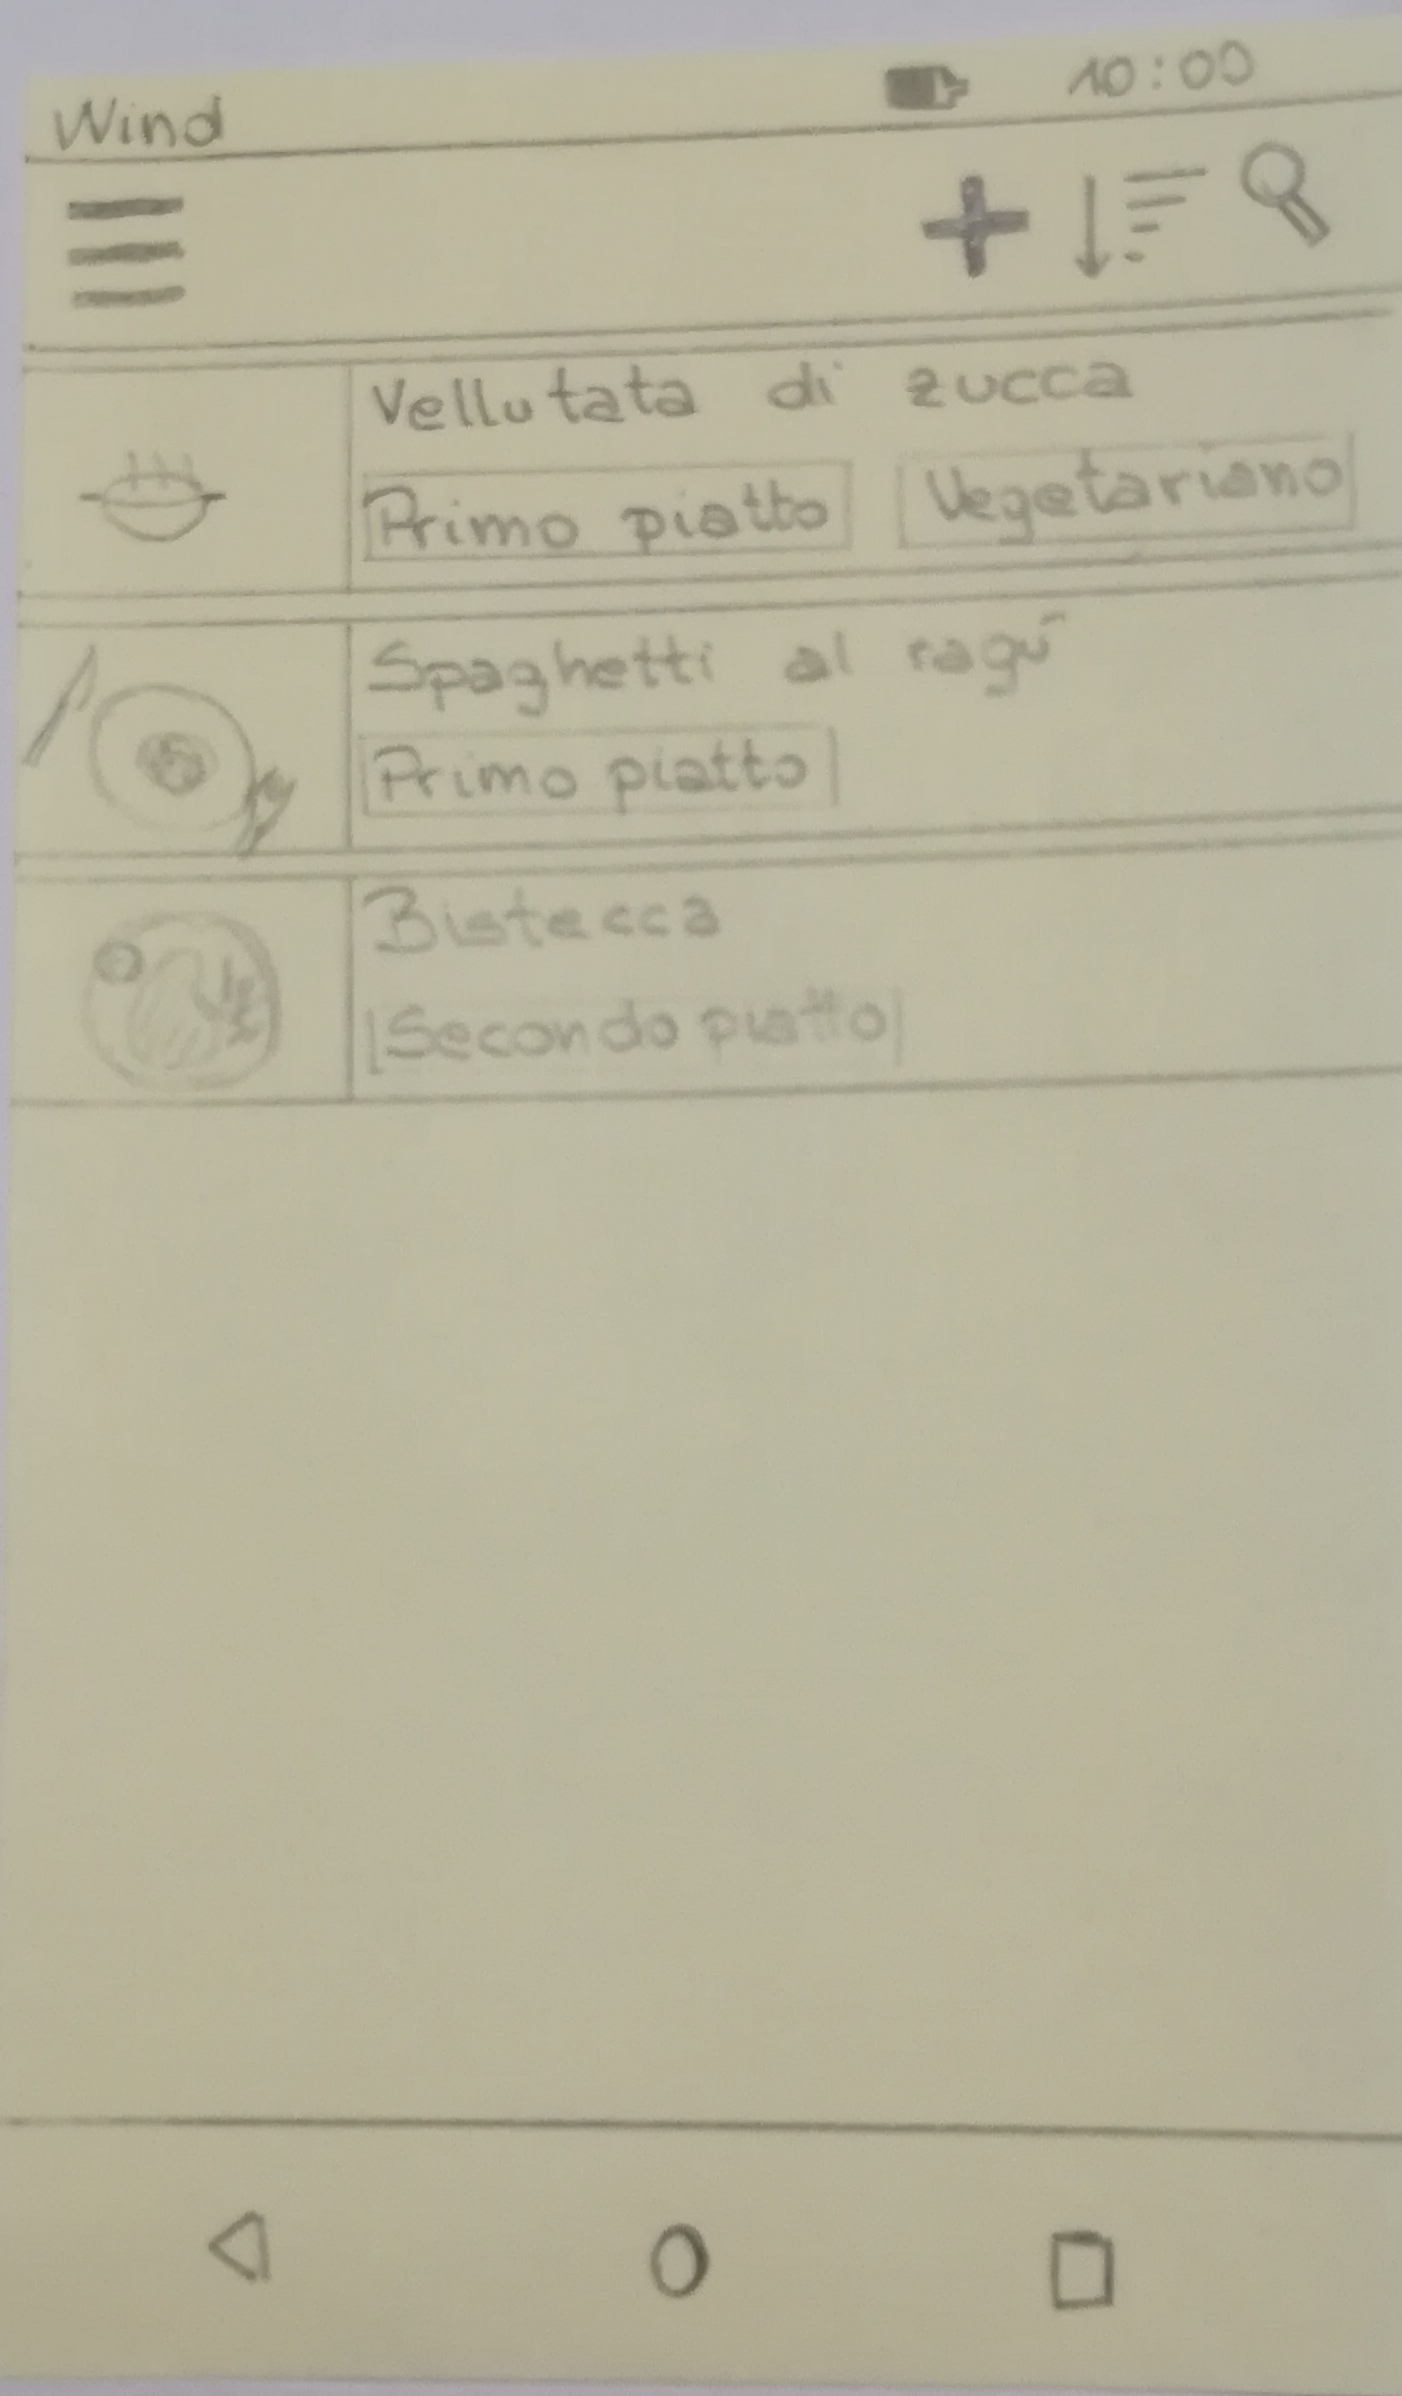 Wind 10:00
Vellutata di zucca
Primo piatto Vegetariano
Spaghetti al ragù
Primo piatto
Bistecca
Secondo piatto